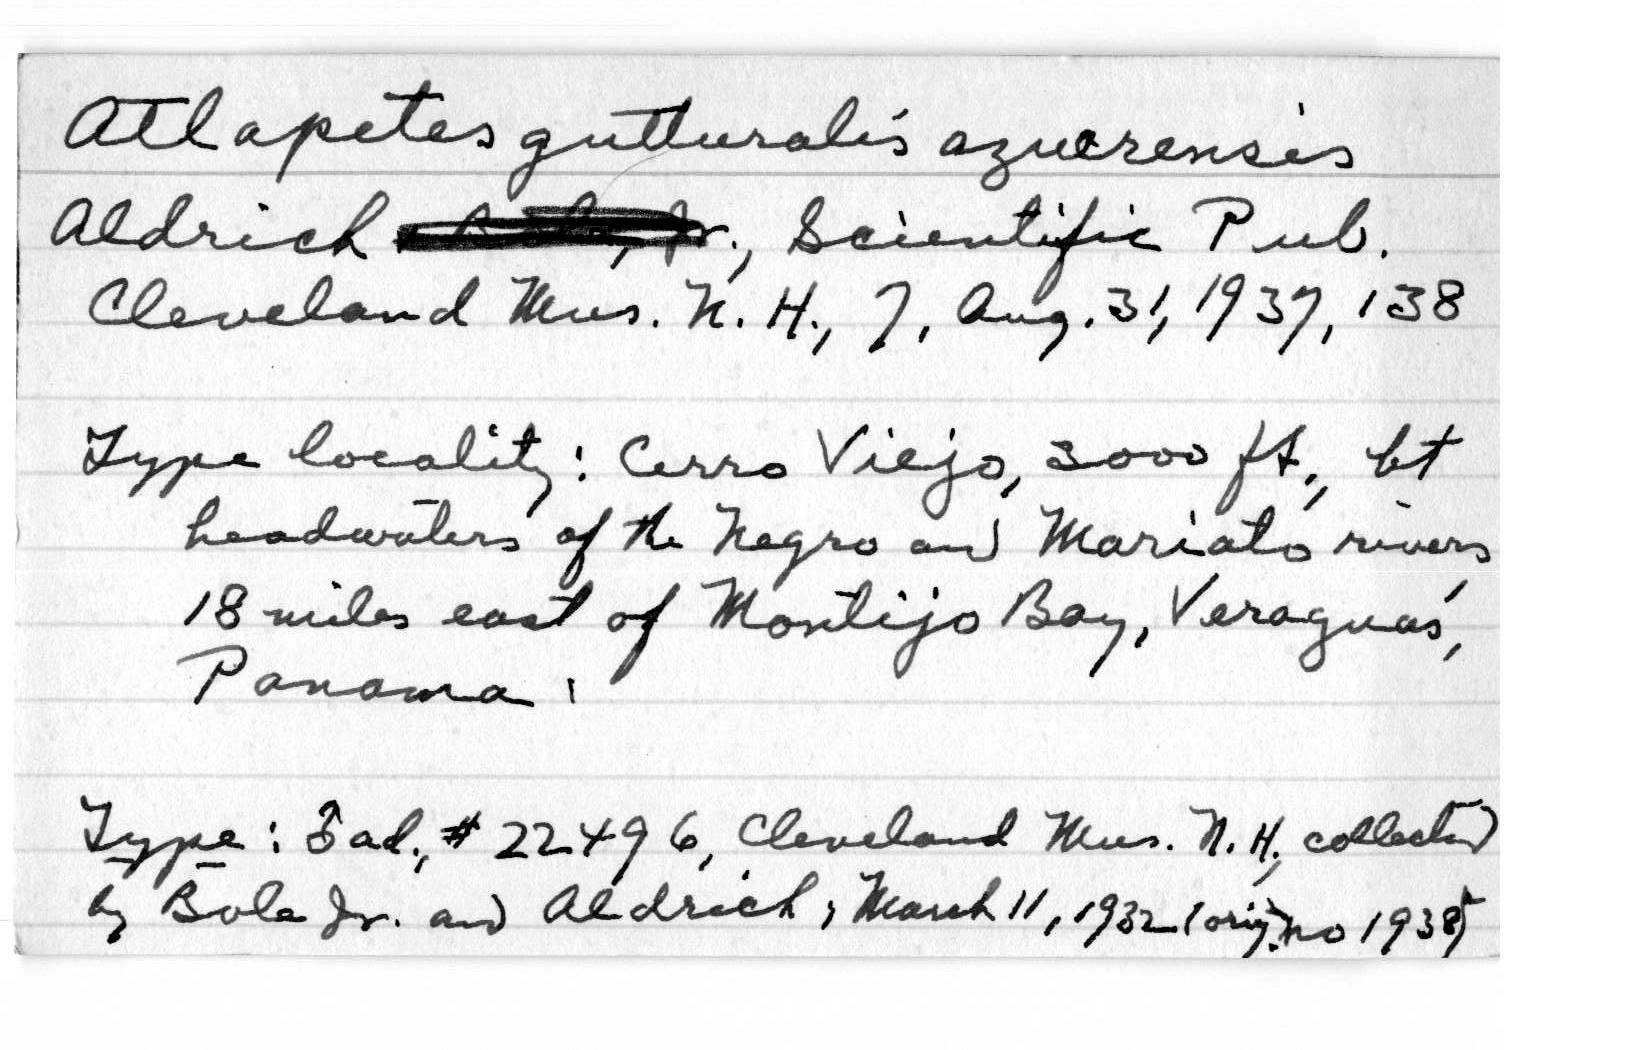 Atlapetes gutturalis azuerensis
Aldrich & Bole, Jr., Scientific Pub.
Cleveland Mus. N. H., 7, Aug. 31, 1937, 138
Type locality: Cerro Viejo, 3000 ft., bt
headwaters of the Negro and Mariato rivers
18 miles east of Montijo Bay, Veraguas,
Panama.
Type: ♂ ad., # 22496, Cleveland Mus. N. H., collected
by Bole Jr. and Aldrich, March 11, 1932 (orig. no 1938)